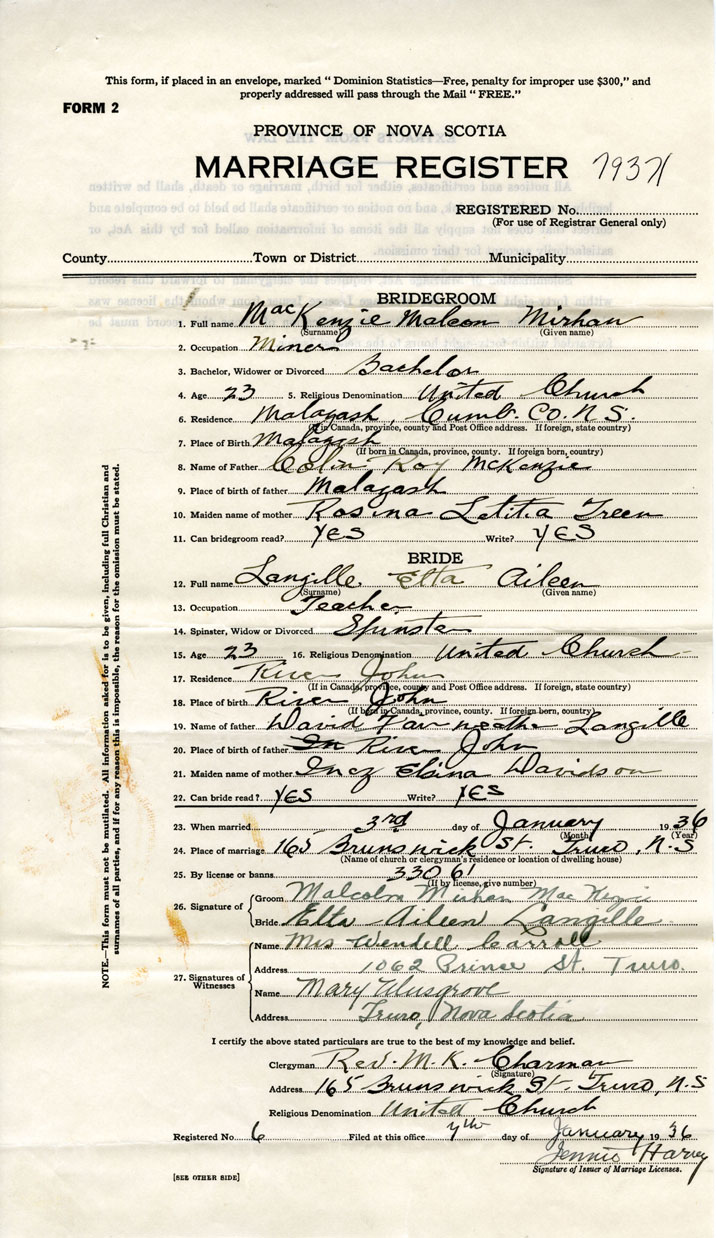 This form, if placed in an envelope, marked " Dominion Statistics—Free, penalty for improper use $300," and
properly addressed will pass through the Mail " FREE."
FORM 2
PROVINCE OF NOVA SCOTIA
MARRIAGE REGISTER
REGISTERED No.
(For use of Registrar General only)
County Town or District Municipality
BRIDEGROOM
1. Full name MacKenzie
(Surname) (Given name)
2. Occupation Miner
3. Bachelor, Widower or Divorced Bachelor
4. Age 23 5. Religious Denomination United Church
6. Residence Malagash, Cumb. Co. N.S.
(In Canada, province, county and Post Office address. If foreign, state country)
7. Place of Birth Malagash
(If born in Canada, province, county. If foreign born, country)
8. Name of Father Colin Roy McKenzie
9. Place of birth of father Malagash
10. Maiden name of mother Rosina Letitia Treen
11. Can bridegroom read? YES Write? YES
BRIDE
12. Full name Langille Etta Aileen
(Surname) (Given name)
13. Occupation Teacher
14. Spinster, Widow or Divorced Spinster
15. Age 23 16. Religious Denomination United Church
17. Residence River John
(If in Canada, province, county and Post Office address. If foreign, state country)
18. Place of birth River John
(If born in Canada, province, county. If foreign born, country)
19. Name of father David Langille
20. Place of birth of father River John
21. Maiden name of mother Inez Elaina Davidson
22. Can bride read? YES Write? YES
23. When married 3rd day of January 1936
(Month) (Year)
24. Place of marriage 165 Brunswick St. Truro, N.S
(Name of church or clergyman's residence or location of dwelling house)
25. By license or banns 33061
(If by license, give number)
26. Signature of
Groom Malcolm
Bride Etta Aileen Langille
27. Signatures of Witnesses
Name Mrs Wendell Carroll
Address 1062 Prince St. Truro.
Name Mary Musgrove
Address Truro, Nova Scotia
I certify the above stated particulars are true to the best of my knowledge and belief.
Clergyman Rev. M. K. Charman
(Signature)
Address 165 Brunswick St. Truro, N.S
Religious Denomination United Church
Registered No. 6 Filed at this office 7th day of January 1936
Jennie Harvey
Signature of Issuer of Marriage Licenses.
[SEE OTHER SIDE]
NOTE.—This form must not be mutilated. All information asked for is to be given, including full Christian and
surnames of all parties, and if for any reason this is impossible, the reason for the omission must be stated.